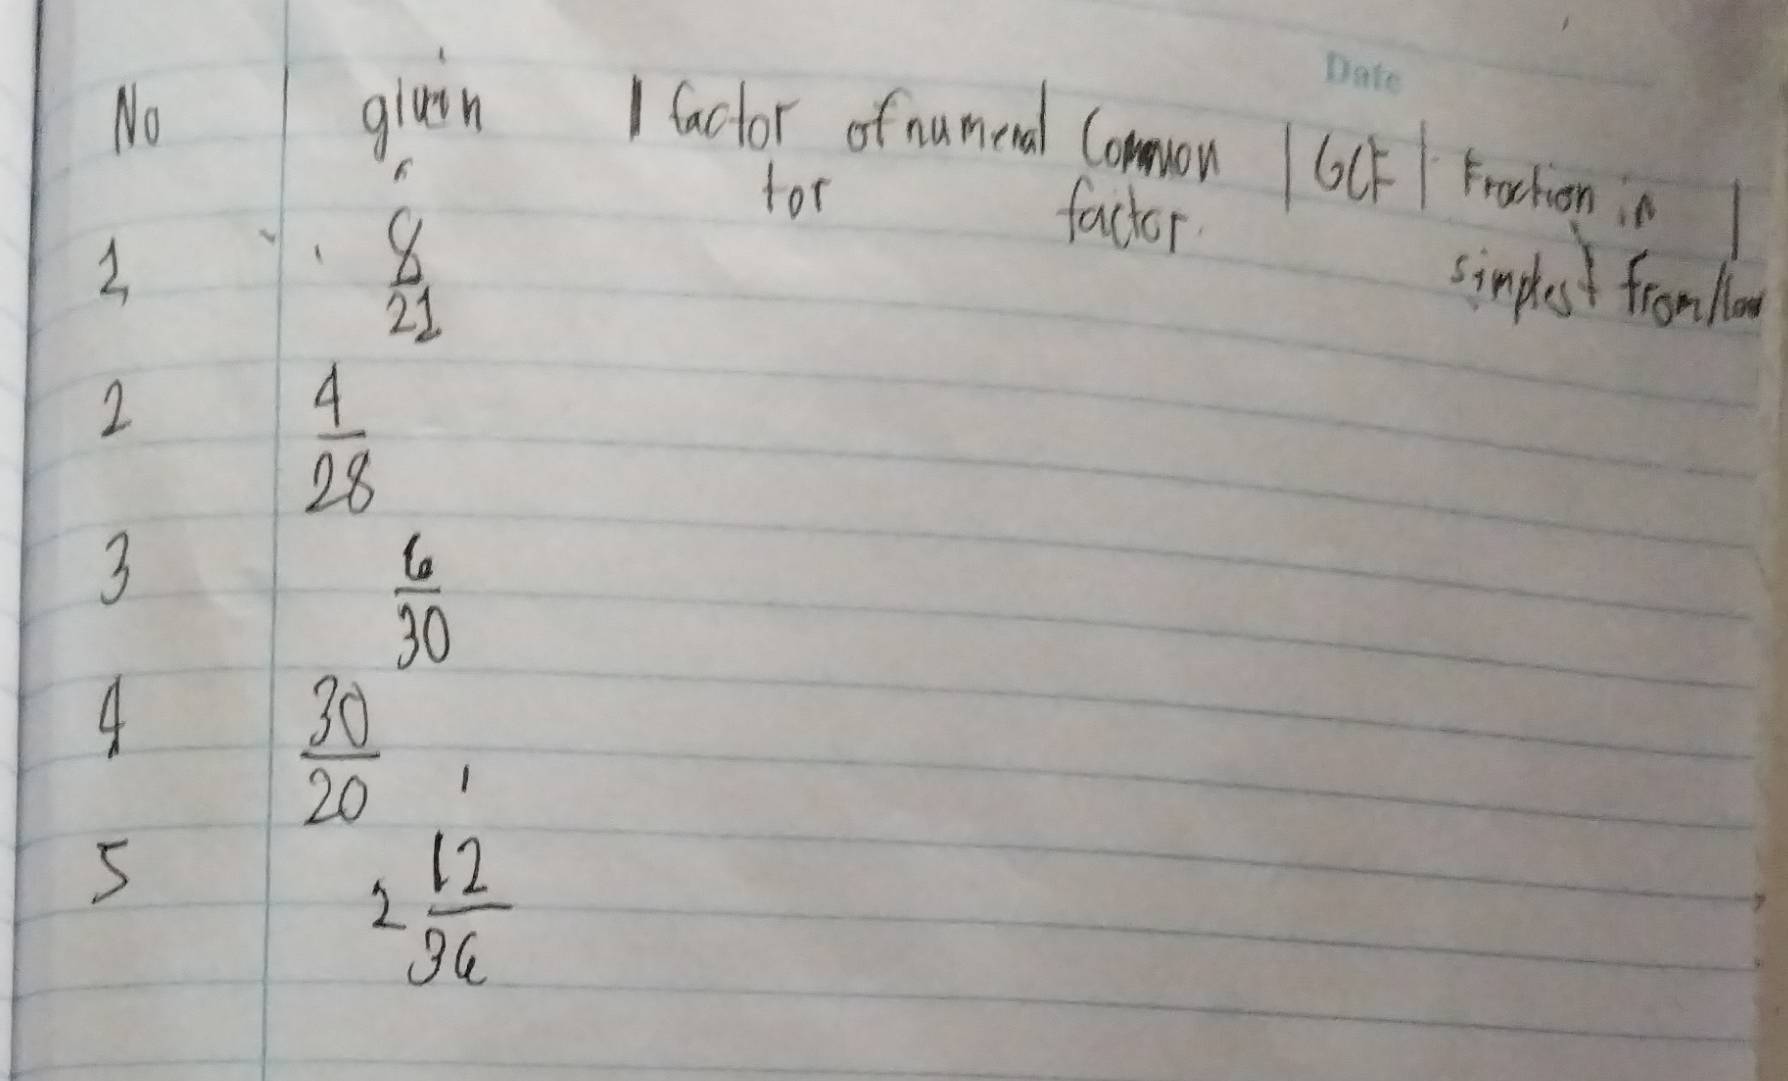 Date
No | given | factor of numeral Common | GCF | Fraction in |
tor factor. simplest from/low
1 8
21
2 4
28
3 6
30
4 30
20
5 2 12
36